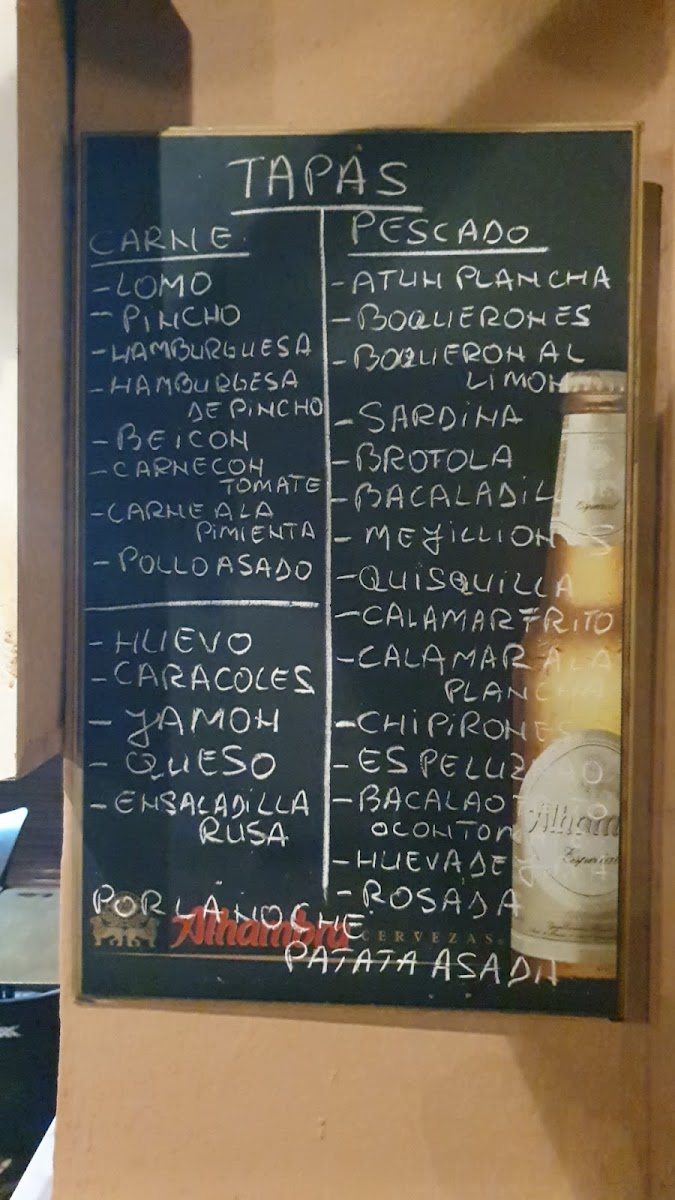 TAPAS
CARNE
- LOMO
- PINCHO
- HAMBURGUESA
- HAMBURGESA
DE PINCHO
- BEICON
- CARNE CON
TOMATE
- CARNE A LA
PIMIENTA
- POLLO ASADO
- HUEVO
- CARACOLES
- JAMON
- QUESO
- ENSALADILLA
RUSA
PESCADO
- ATUN PLANCHA
- BOQUERONES
- BOQUERON AL
LIMON
- SARDINA
- BROTOLA
- BACALADILL
- MEJILLIONES
- QUISQUILLA
- CALAMAR FRITO
- CALAMAR A LA
PLANCHA
- CHIPIRONES
- ESPELUZNAO
- BACALAO
O CON
- HUEVA DE
- ROSADA
POR LA NOCHE
PATATA ASADA
Alhambra
CERVEZAS
Especial
Alham
Especial